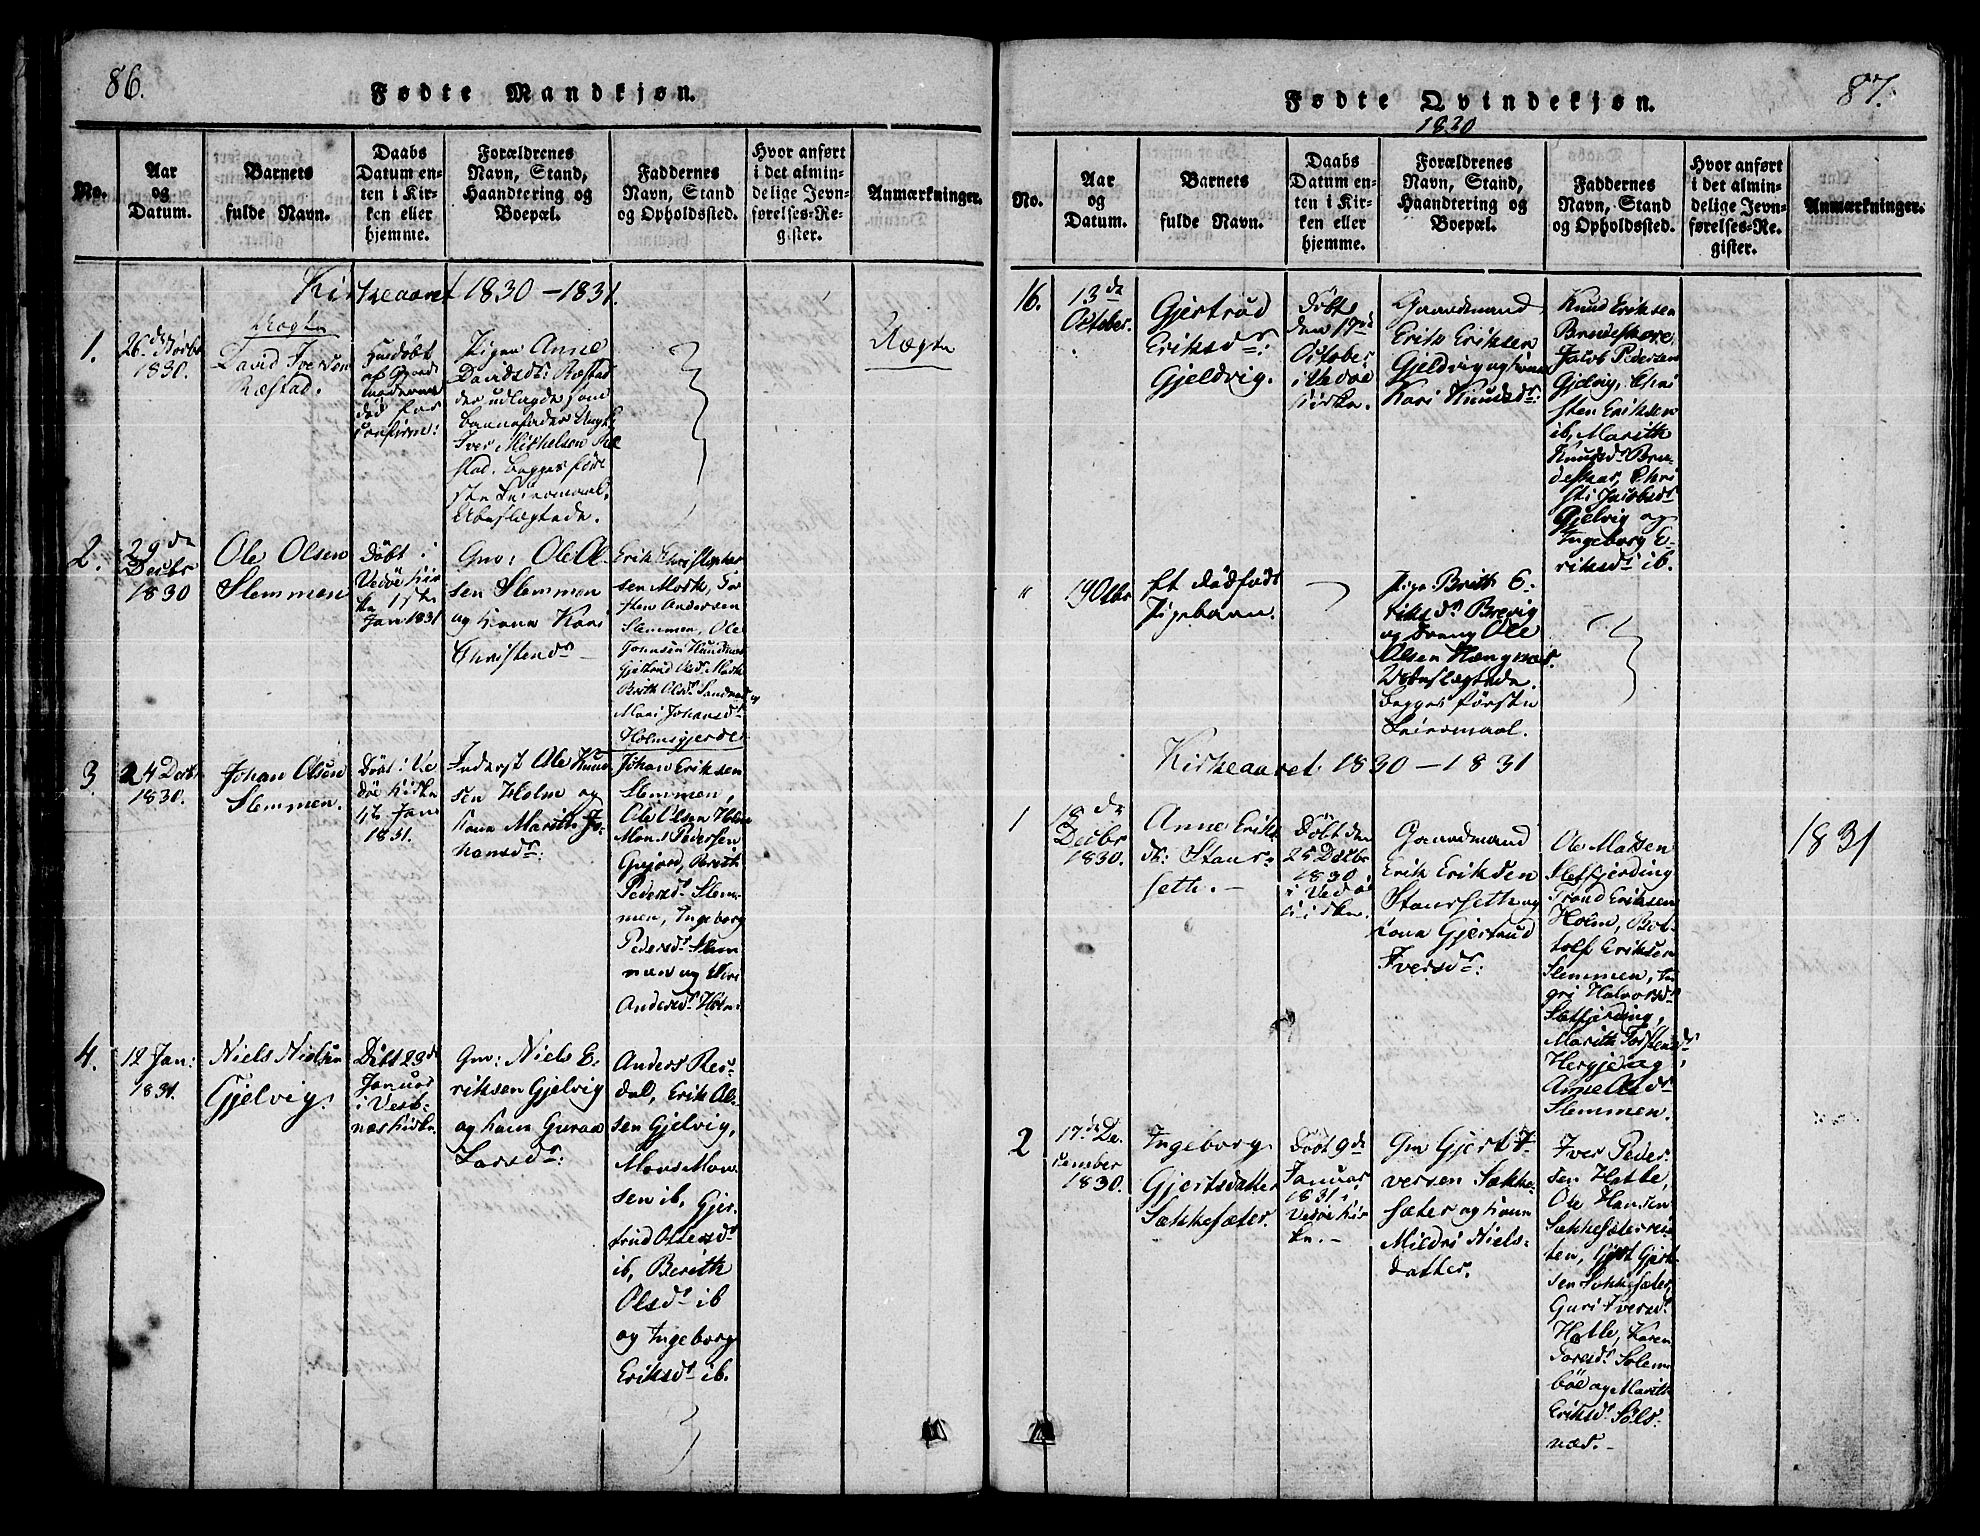 86.
Fødte Mandkjøn.
No.
Aar
og
Datum.
Barnets
fulde Navn.
Daabs
Datum en-
ten i Kir-
ken eller
hjemme.
Forældrenes
Navn, Stand,
Haandtering og
Boepæl.
Faddernes
Navn, Stand
og Opholdssted.
Hvor anført
i det almin-
delige Jevn-
førelses-Re-
gister.
Anmærkninger.
Kirkeaaret 1830-1831.
1.
1830.
Uægte
David Iversen
Ræstad.
Pigen Anne
Davidsdr: Ræstad
der udlagde som
Barnefader Ungk.
Iver Mikkelsen Ræ
stad. Begges før
ste Leiermaal.
Ubeslægtede.
Uægte
2.
29de
Decbr
1830
Ole Olsen
Slemmen
Døbt i
Vedøe Kir
ke 1ste
Jan 1831
Gm: Ole Ol
sen Slemmen
og Kone Kari
Christensdr
Erik Christopher
sen Mork, Tor
sten Andersen
Slemmen, Ole
Johnsen Hundnæs
Gjertrud Olsdr. Mork
Brith Olsdr. Sandnæs og
Mari Johansdr
Holmsgjerde
3
24 Decbr
1830.
Johan Olsen
Slemmen.
Døbt i Ve
døe Kirke
Jan
1831.
Inderst Ole Knud
sen Holm og
Kone Marith Jo
hansdr:
Johan Eriksen
Slemmen,
Ole Olsen Holm
Mons Pedersen
Brith
Pedersdr Slem-
men, Ingeborg
Pedersdr Slem
men og
Andersdr Holm
4.
12 Jan:
1831.
Niels Nielsen
Gjelvig.
Døbt 23de
Januar
i Vest-
næs Kirke.
Gm: Niels E-
riksen Gjelvig
og Kone Guraa
Larsdr:
Anders Res-
dal, Erik Ol-
sen Gjelvig,
Mons Mon
sen ib, Gjer-
trud Ottersdr
ib, Berith
Olsdr ib
og Ingeborg
Eriksdr ib.
87.
Fødte Qvindekjøn.
1830
No.
Aar
og
Datum.
Barnets
fulde Navn.
Daabs
Datum en-
ten i Kir-
ken eller
hjemme.
Forældrenes
Navn, Stand,
Haandtering og
Boepæl.
Faddernes
Navn, Stand
og Opholdssted.
Hvor anført
i det almin-
delige Jevn-
førelses-Re-
gister.
Anmærkninger.
16.
13de
October.
Gjertrud
Eriksdr:
Gjeldvig.
Døbt
den 17de
October
i Vedøe
Kirke.
Gaardmand
Erik Eriksen
Gjeldvig og Kone
Kari Knudsdr:
Knud Eriksen
Brudeskore,
Jacob Pedersen
Gjelvig, Chri
sten Eriksen
ib, Marith
Knudsdr Bru-
deskar, Chri
sti Jacobsdr
Gjelvig og
Ingeborg E-
riksdr ib.
"
19 Octbr
Et dødfødt
Pigebarn.
Pige Brith E-
riksdr. Brevig
og Dreng Ole
Olsen Hængnæs.
Ubeslægtede.
Begges første
Leiermaal.
Kirkeaaret 1830-1831
1
18de
Decbr
1830.
Anne Eriks
dr: Staur-
seth.
Døbt den
25 Decbr
1830
i Vedøe
Kirke.
Gaardmand
Erik Eriksen
Staurseth og
Kone Gjertrud
Iversdr:
Ole Madsen
Sletfjerding
Trond Eriksen
Holm, Bot
tolf Eriksen
Slemmen, In
gri Halvorsdr
Marith Torstensdr
og
Anne Olsdr
Slemmen.
1831
2
17de De-
cember
1830.
Ingeborg
Gjertsdatter
Sækkesæter.
Døbt 9de
Januar
1831 i
Vedøe Kir
ke.
Gm Gjert I-
versen Sække-
sæter og Kone
Mildri Niels-
datter.
Iver Peder-
sen Hatle,
Ole Hansen
Gjert Gjert-
sen Sækkesæter,
Guri Iversdr
Hatle, Karen
Toresdr. Solem-
bøe og Marith
Eriksdr. Søls-
næs.